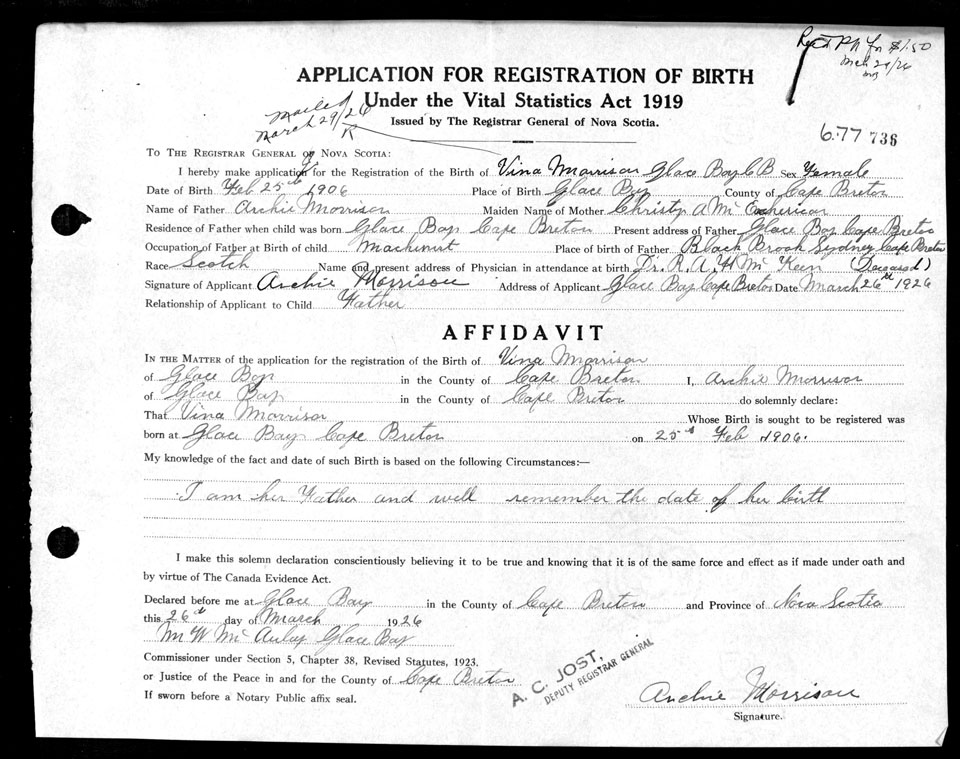 Rec'd P.N. for $1.50
Mch 29/26
APPLICATION FOR REGISTRATION OF BIRTH
Under the Vital Statistics Act 1919
Mailed
March 29/26
R
Issued by The Registrar General of Nova Scotia.
677 736
TO THE REGISTRAR GENERAL OF NOVA SCOTIA:
I hereby make application for the Registration of the Birth of Vina Morrison Glace Bay C B Sex Female
Date of Birth Feb 25th 1906 Place of Birth Glace Bay County of Cape Breton
Name of Father Archie Morrison Maiden Name of Mother Christy A Mc
Residence of Father when child was born Glace Bay Cape Breton Present address of Father Glace Bay Cape Breton
Occupation of Father at Birth of child Machinist Place of birth of Father Black Brook Sydney Cape Breton
Race Scotch Name and present address of Physician in attendance at birth Dr. R. A. H. McKeen (Deceased)
Signature of Applicant Archie Morrison Address of Applicant Glace Bay Cape Breton Date March 26th 1926
Relationship of Applicant to Child Father
AFFIDAVIT
IN THE MATTER of the application for the registration of the Birth of Vina Morrison
of Glace Bay in the County of Cape Breton I, Archie Morrison
of Glace Bay in the County of Cape Breton do solemnly declare:
That Vina Morrison Whose Birth is sought to be registered was
born at Glace Bay Cape Breton on 25th Feb 1906.
My knowledge of the fact and date of such Birth is based on the following Circumstances:—
I am her Father and well remember the date of her birth
I make this solemn declaration conscientiously believing it to be true and knowing that it is of the same force and effect as if made under oath and
by virtue of The Canada Evidence Act.
Declared before me at Glace Bay in the County of Cape Breton and Province of Nova Scotia
this 26th day of March 1926
M W McAulay Glace Bay
Commissioner under Section 5, Chapter 38, Revised Statutes, 1923.
or Justice of the Peace in and for the County of Cape Breton
If sworn before a Notary Public affix seal.
A. C. JOST,
DEPUTY REGISTRAR GENERAL
Archie Morrison
Signature.